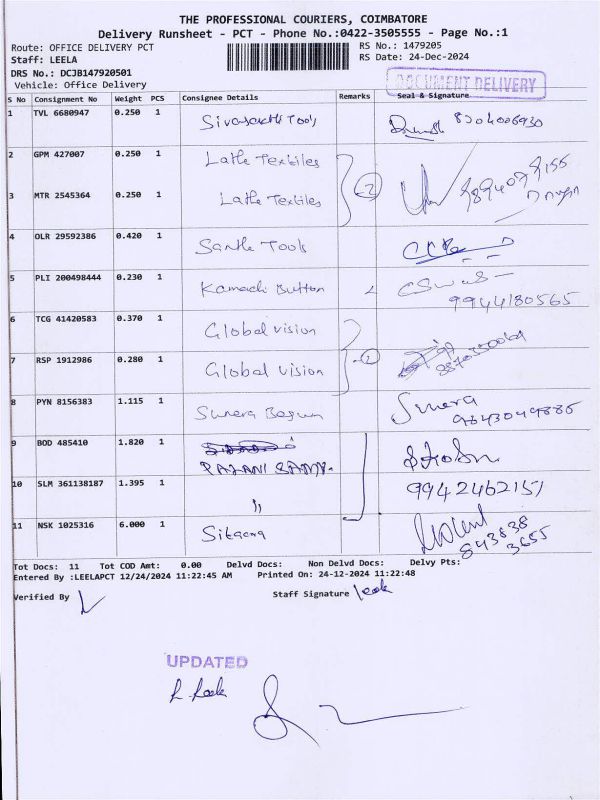 THE PROFESSIONAL COURIERS, COIMBATORE
Delivery Runsheet - PCT - Phone No.:0422-3505555 - Page No.:1
Route: OFFICE DELIVERY PCT RS No.: 1479205
Staff: LEELA RS Date: 24-Dec-2024
DRS No.: DCJB147920501
Vehicle: Office Delivery DOCUMENT DELIVERY
S No Consignment No Weight PCS Consignee Details Remarks Seal & Signature
1 TVL 6680947 0.250 1 Tools
2 GPM 427007 0.250 1 Lathe Textiles
3 MTR 2545364 0.250 1 Lathe Textiles
4 OLR 29592386 0.420 1 Santhe Tools
5 PLI 200498444 0.230 1 Kamachi Button
9944180565
6 TCG 41420583 0.370 1 Global vision
7 RSP 1912986 0.280 1 Global vision
8 PYN 8156383 1.115 1 Sunera Begum Sunera
9843049885
9 BOD 485410 1.820 1
PALANI SAMY.
10 SLM 361138187 1.395 1 " 9942462151
11 NSK 1025316 6.000 1 Sitaara
843838
3655
Tot Docs: 11 Tot COD Amt: 0.00 Delvd Docs: Non Delvd Docs: Delvy Pts:
Entered By :LEELAPCT 12/24/2024 11:22:45 AM Printed On: 24-12-2024 11:22:48
Verified By Staff Signature
UPDATED